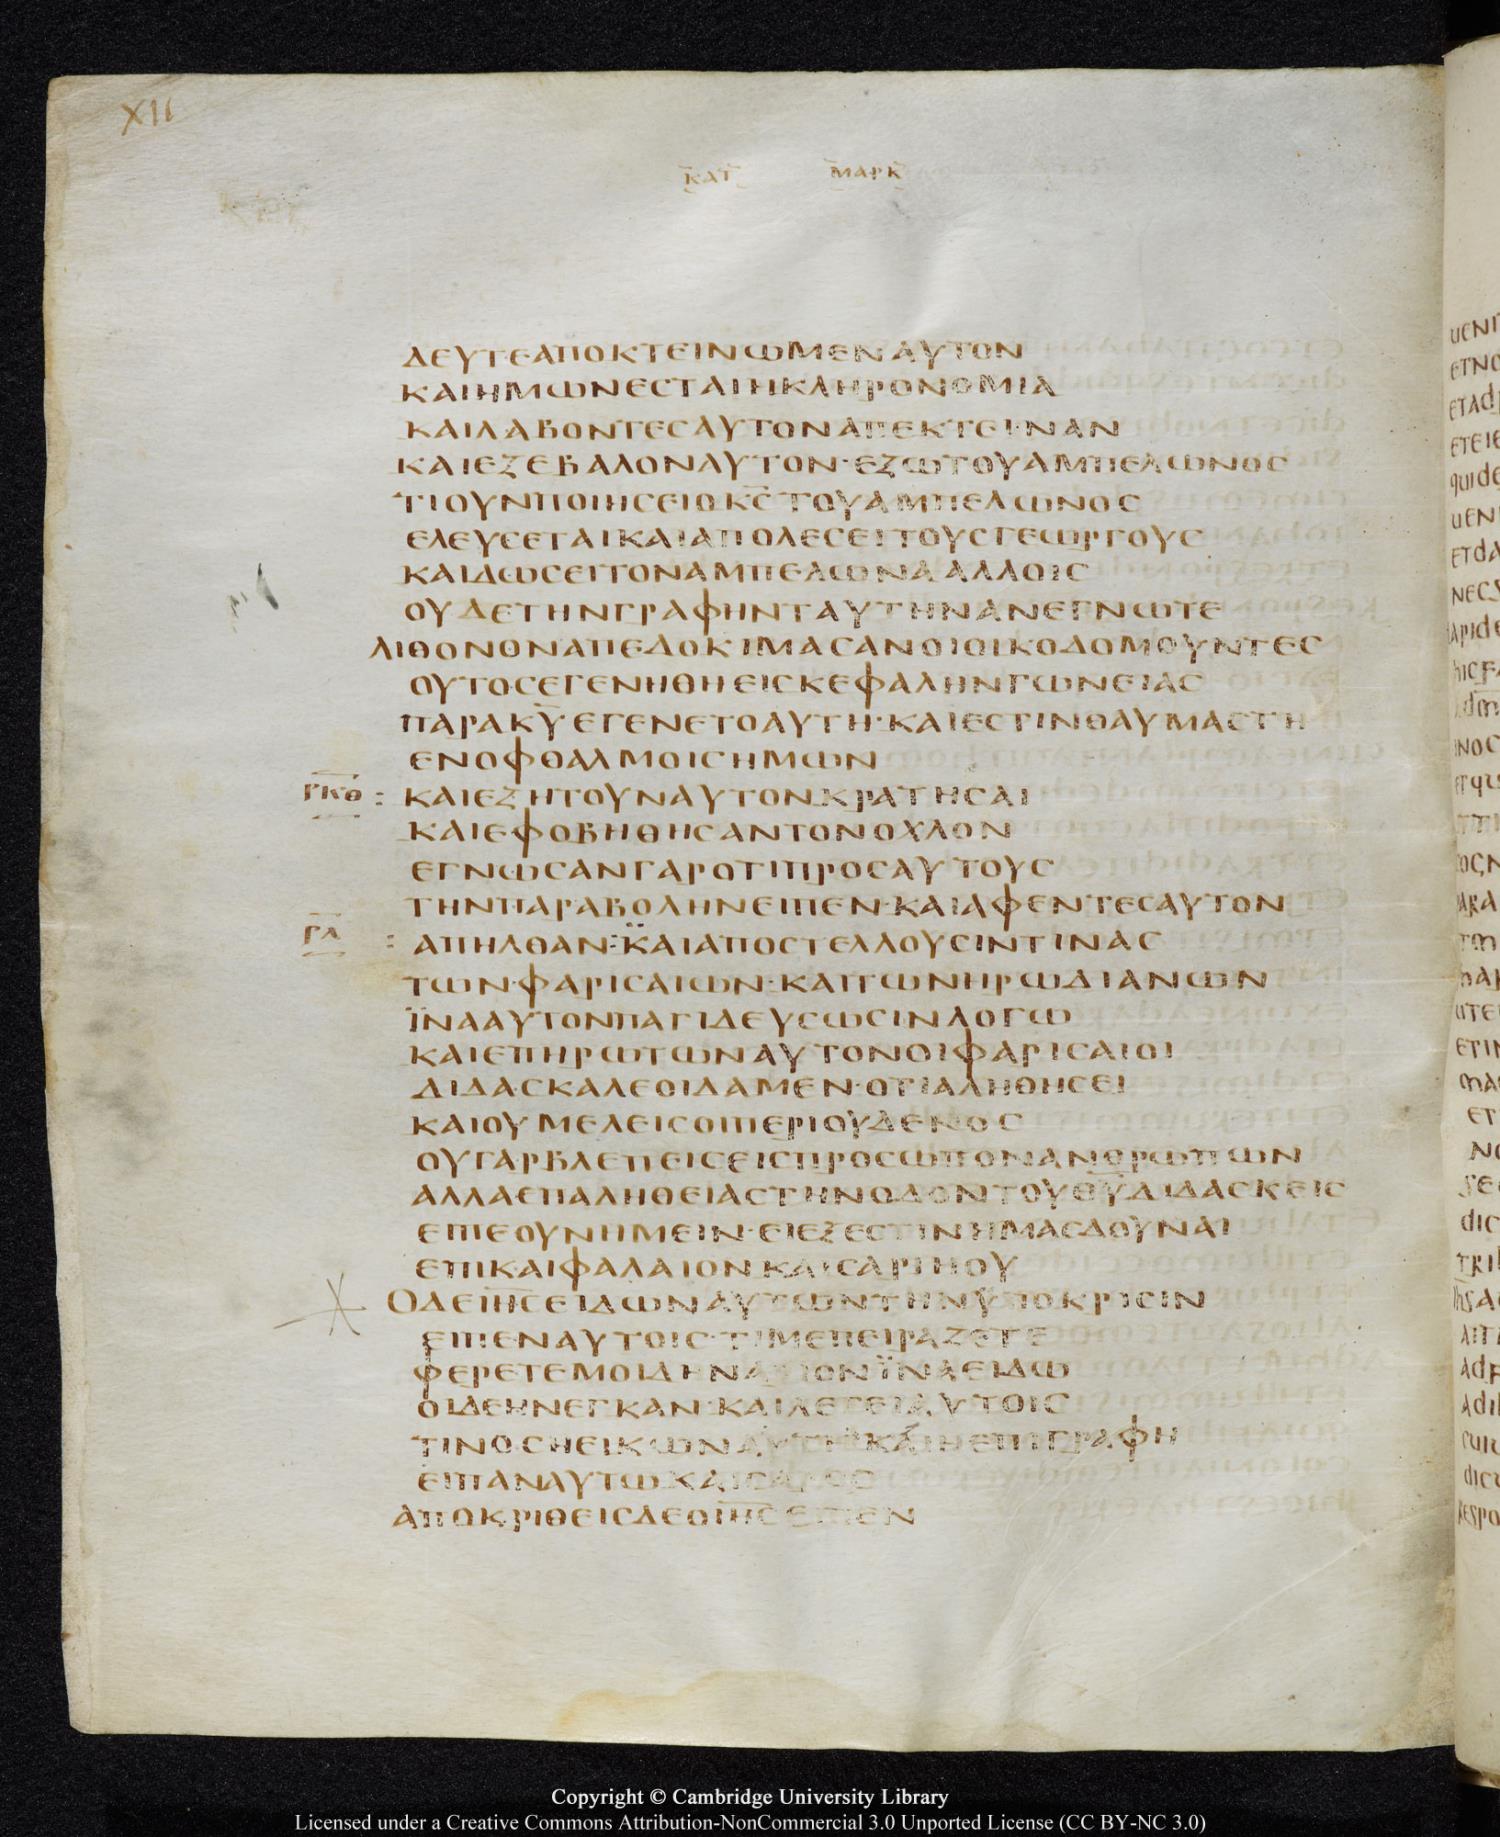 XII
ΚΑΤ ΜΑΡΚ
ΔΕΥΤΕΑΠΟΚΤΕΙΝΩΜΕΝΑΥΤΟΝ
ΚΑΙΗΜΩΝΕΣΤΑΙΗΚΛΗΡΟΝΟΜΙΑ
ΚΑΙΛΑΒΟΝΤΕΣΑΥΤΟΝΑΠΕΚΤΕΙΝΑΝ
ΚΑΙΕΞΕΒΑΛΟΝΑΥΤΟΝ·ΕΞΩΤΟΥΑΜΠΕΛΩΝΟΣ
ΤΙΟΥΝΠΟΙΗΣΕΙΟΚ̅Σ̅ΤΟΥΑΜΠΕΛΩΝΟΣ
ΕΛΕΥΣΕΤΑΙΚΑΙΑΠΟΛΕΣΕΙΤΟΥΣΓΕΩΡΓΟΥΣ
ΚΑΙΔΩΣΕΙΤΟΝΑΜΠΕΛΩΝΑΑΛΛΟΙΣ
ΟΥΔΕΤΗΝΓΡΑΦΗΝΤΑΥΤΗΝΑΝΕΓΝΩΤΕ
ΛΙΘΟΝΟΝΑΠΕΔΟΚΙΜΑΣΑΝΟΙΟΙΚΟΔΟΜΟΥΝΤΕΣ
ΟΥΤΟΣΕΓΕΝΗΘΗΕΙΣΚΕΦΑΛΗΝΓΩΝΕΙΑΣ
ΠΑΡΑΚ̅Υ̅ΕΓΕΝΕΤΟΑΥΤΗ·ΚΑΙΕΣΤΙΝΘΑΥΜΑΣΤΗ
ΕΝΟΦΘΑΛΜΟΙΣΗΜΩΝ
ΓΚΘ : ΚΑΙΕΖΗΤΟΥΝΑΥΤΟΝΚΡΑΤΗΣΑΙ
ΚΑΙΕΦΟΒΗΘΗΣΑΝΤΟΝΟΧΛΟΝ
ΕΓΝΩΣΑΝΓΑΡΟΤΙΠΡΟΣΑΥΤΟΥΣ
ΤΗΝΠΑΡΑΒΟΛΗΝΕΙΠΕΝ·ΚΑΙΑΦΕΝΤΕΣΑΥΤΟΝ
ΓΛ : ΑΠΗΛΘΑΝ:ΚΑΙΑΠΟΣΤΕΛΛΟΥΣΙΝΤΙΝΑΣ
ΤΩΝ·ΦΑΡΙΣΑΙΩΝ·ΚΑΙΤΩΝΗΡΩΔΙΑΝΩΝ
ΪΝΑΑΥΤΟΝΠΑΓΙΔΕΥΣΩΣΙΝΛΟΓΩ
ΚΑΙΕΠΗΡΩΤΩΝΑΥΤΟΝΟΙΦΑΡΙΣΑΙΟΙ
ΔΙΔΑΣΚΑΛΕΟΙΔΑΜΕΝ·ΟΤΙΑΛΗΘΗΣΕΙ
ΚΑΙΟΥΜΕΛΕΙΣΟΙΠΕΡΙΟΥΔΕΝΟΣ
ΟΥΓΑΡΒΛΕΠΕΙΣΕΙΣΠΡΟΣΩΠΟΝΑΝΘΡΩΠΩΝ
ΑΛΛΑΕΠΑΛΗΘΕΙΑΣΤΗΝΟΔΟΝΤΟΥΘ̅Υ̅ΔΙΔΑΣΚΕΙΣ
ΕΙΠΕΟΥΝΗΜΕΙΝ·ΕΙΕΞΕΣΤΙΝΗΜΑΣΔΟΥΝΑΙ
ΕΠΙΚΑΙΦΑΛΑΙΟΝΚΑΙΣΑΡΙΗΟΥ
ΟΔΕΙ̅Η̅Σ̅ΕΙΔΩΝΑΥΤΩΝΤΗΝΫΠΟΚΡΙΣΙΝ
ΕΙΠΕΝΑΥΤΟΙΣ·ΤΙΜΕΠΕΙΡΑΖΕΤΕ
ΦΕΡΕΤΕΜΟΙΔΗΝΑΡΙΟΝΪΝΑΕΙΔΩ
ΟΙΔΕΗΝΕΓΚΑΝ·ΚΑΙΛΕΓΕΙΑΥΤΟΙΣ
ΤΙΝΟΣΗΕΙΚΩΝΑΥΤΗΚΑΙΗΕΠΙΓΡΑΦΗ
ΕΙΠΑΝΑΥΤΩΚΑΙΣΑΡΟΣ
ΑΠΟΚΡΙΘΕΙΣΔΕΟΙ̅Η̅Σ̅ΕΙΠΕΝ
Copyright © Cambridge University Library
Licensed under a Creative Commons Attribution-NonCommercial 3.0 Unported License (CC BY-NC 3.0)